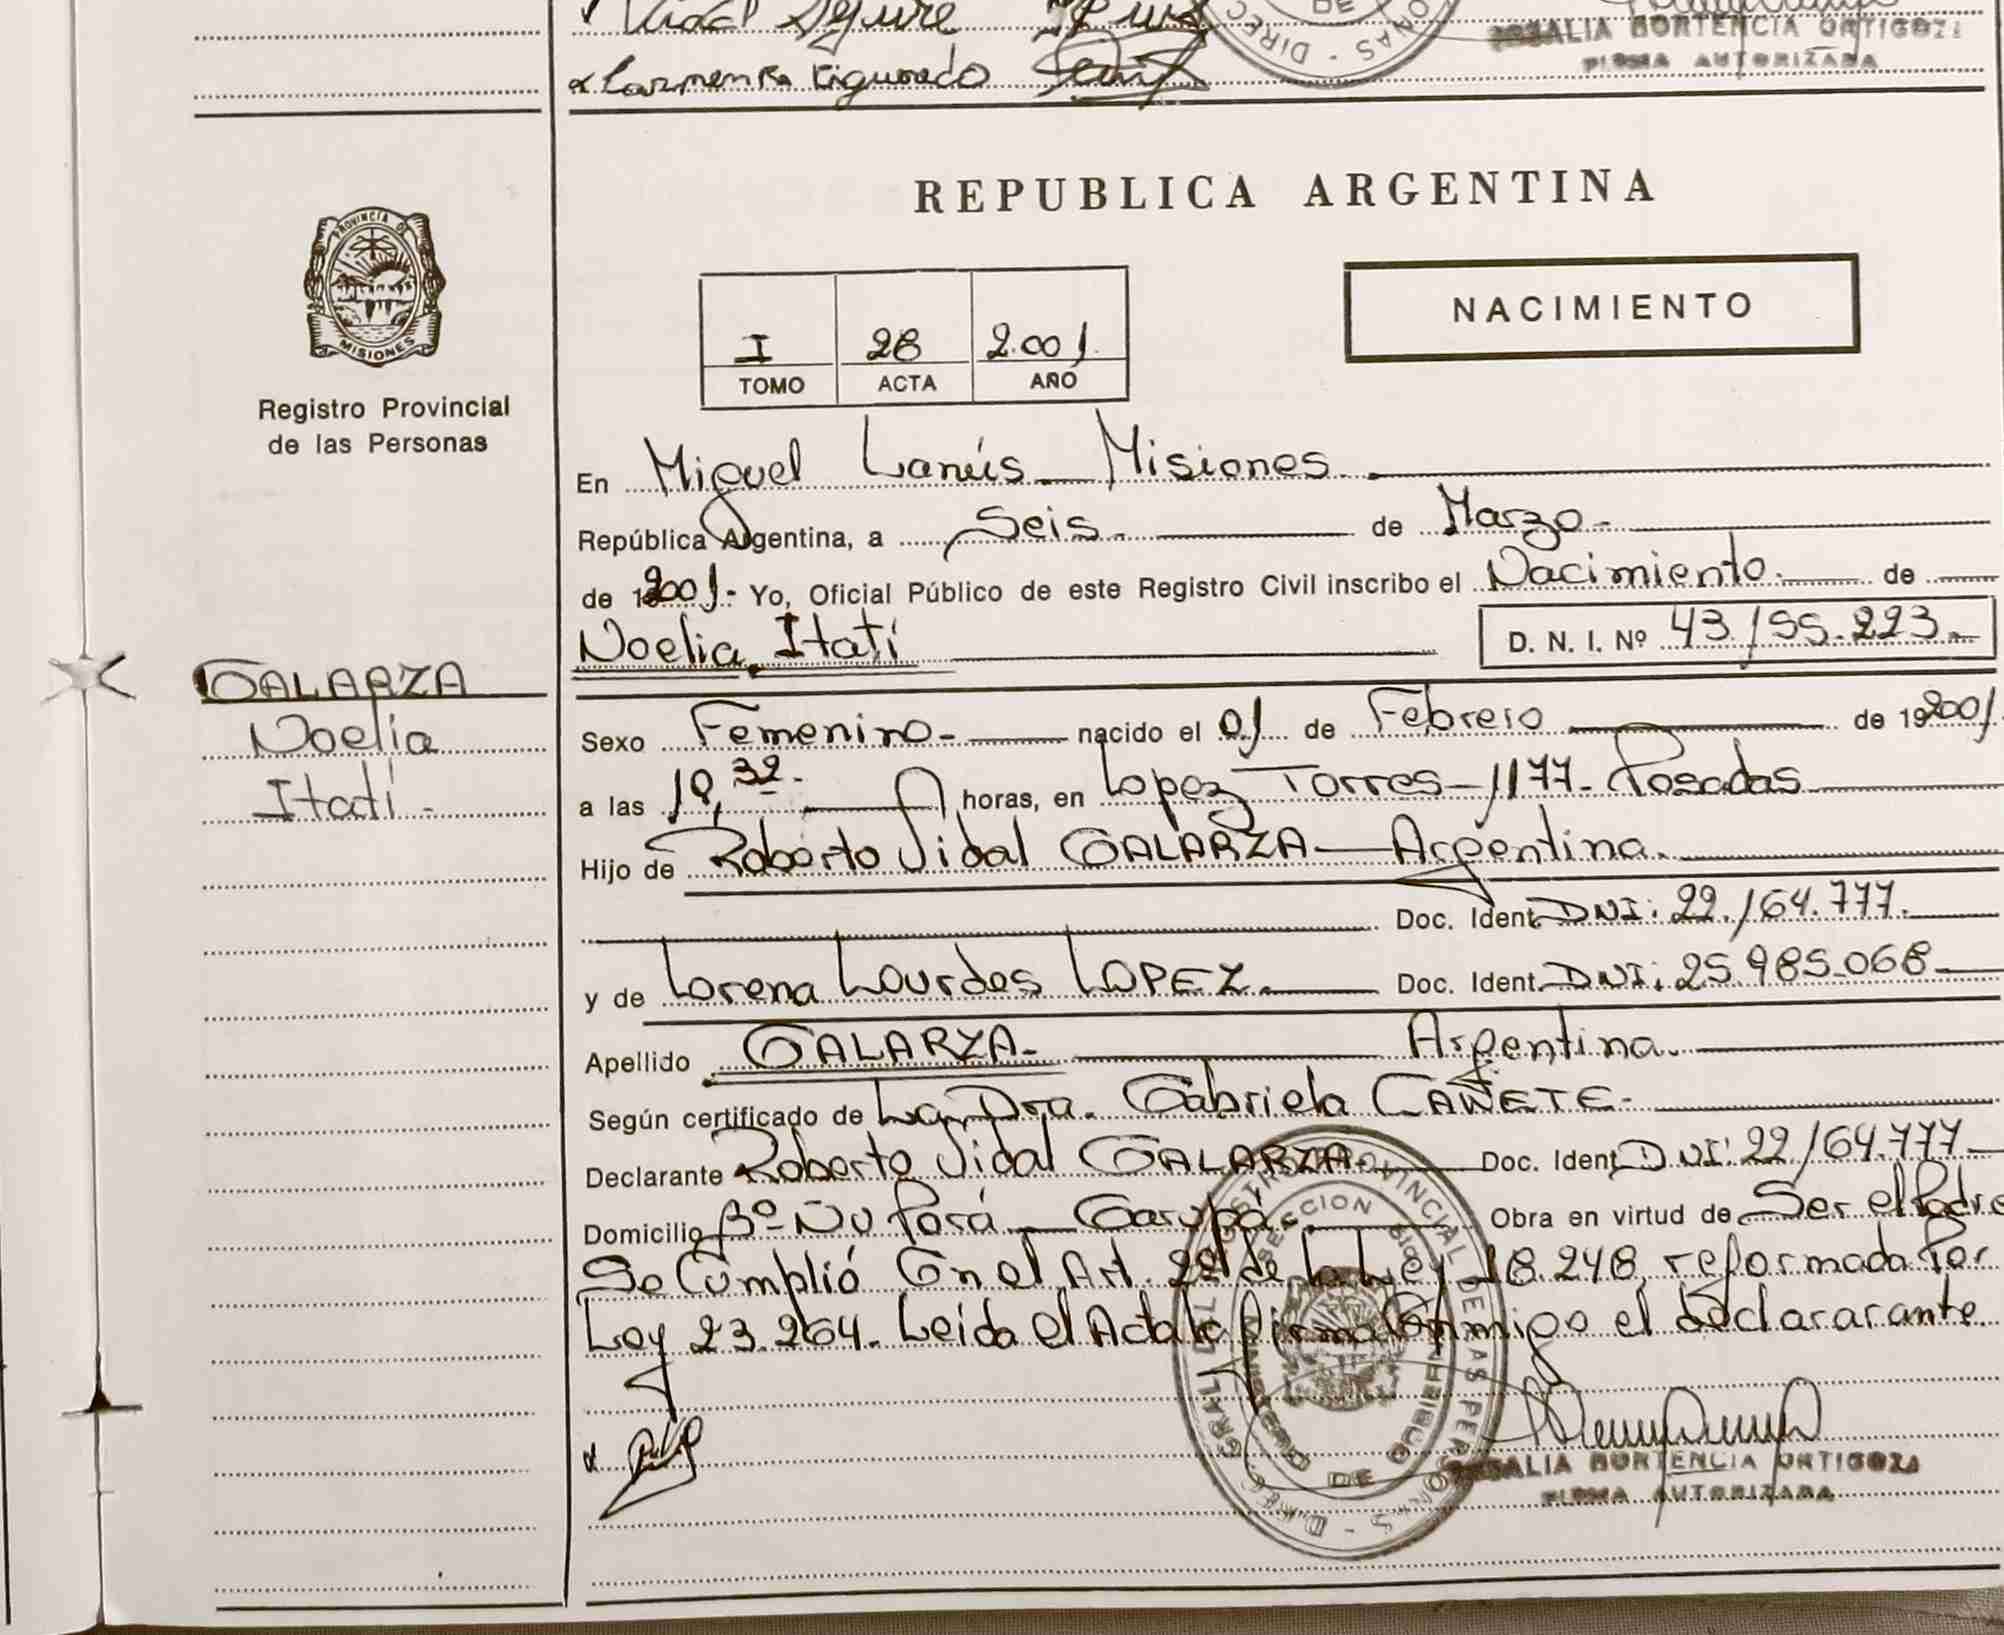 Vidal
Carmen R. Figueredo
ROSALIA HORTENCIA ORTIGOZA
FIRMA AUTORIZADA
PROVINCIA DE
MISIONES
Registro Provincial
de las Personas
REPUBLICA ARGENTINA
NACIMIENTO
I 28 2.001.
TOMO ACTA AÑO
En Miguel Lanús - Misiones.
República Argentina, a Seis. de Marzo-
de 2001.- Yo, Oficial Público de este Registro Civil inscribo el Nacimiento. de
Noelia Itatí D. N. I. Nº 43.155.223.-
GALARZA
Noelia
Itatí.-
Sexo Femenino- nacido el 01 de Febrero de 192001
a las 18,32.- horas, en Lopez Torres-1177- Posadas
Hijo de Roberto Vidal GALARZA - Argentina.
Doc. Ident. DNI: 22.164.777.
y de Lorena Lourdes LOPEZ. Doc. Ident. DNI: 25.985.068-
Apellido GALARZA- Argentina.
Según certificado de La Dra. Gabriela CAÑETE-
Declarante Roberto Vidal GALARZA- Doc. Ident. DNI: 22.164.777-
Domicilio Bº Ñu Porá - Garupá.- Obra en virtud de Ser el Padre
Se Cumplió Con el Art. 2º de la Ley 18.248, reformada Por
Ley 23.264. Leida el Acta la firma Conmigo el declararante.
REGISTRO PROVINCIAL DE LAS PERSONAS - DIREC. GRAL.
SECCION
MINISTERIO DE GOBIERNO
ROSALIA HORTENCIA ORTIGOZA
FIRMA AUTORIZADA